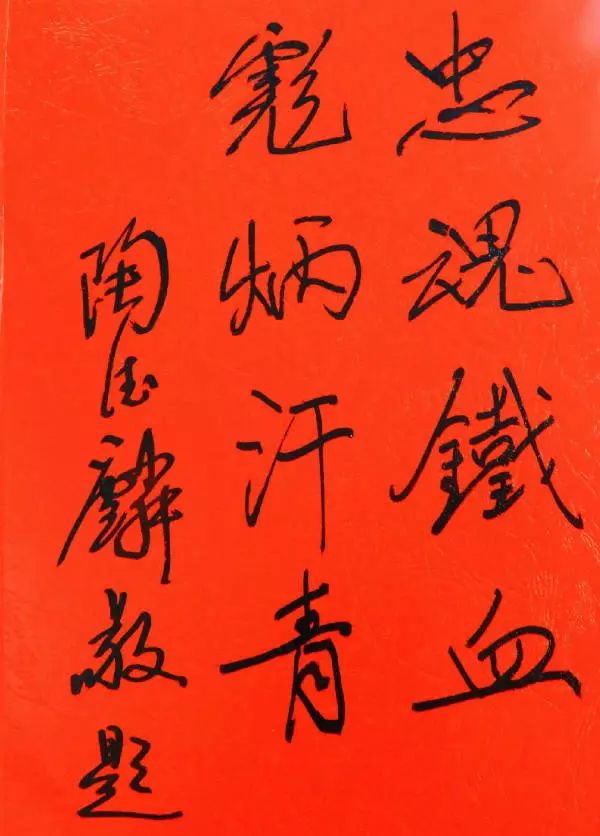 忠魂鐵血
彪炳汗青
陶德麟敬題